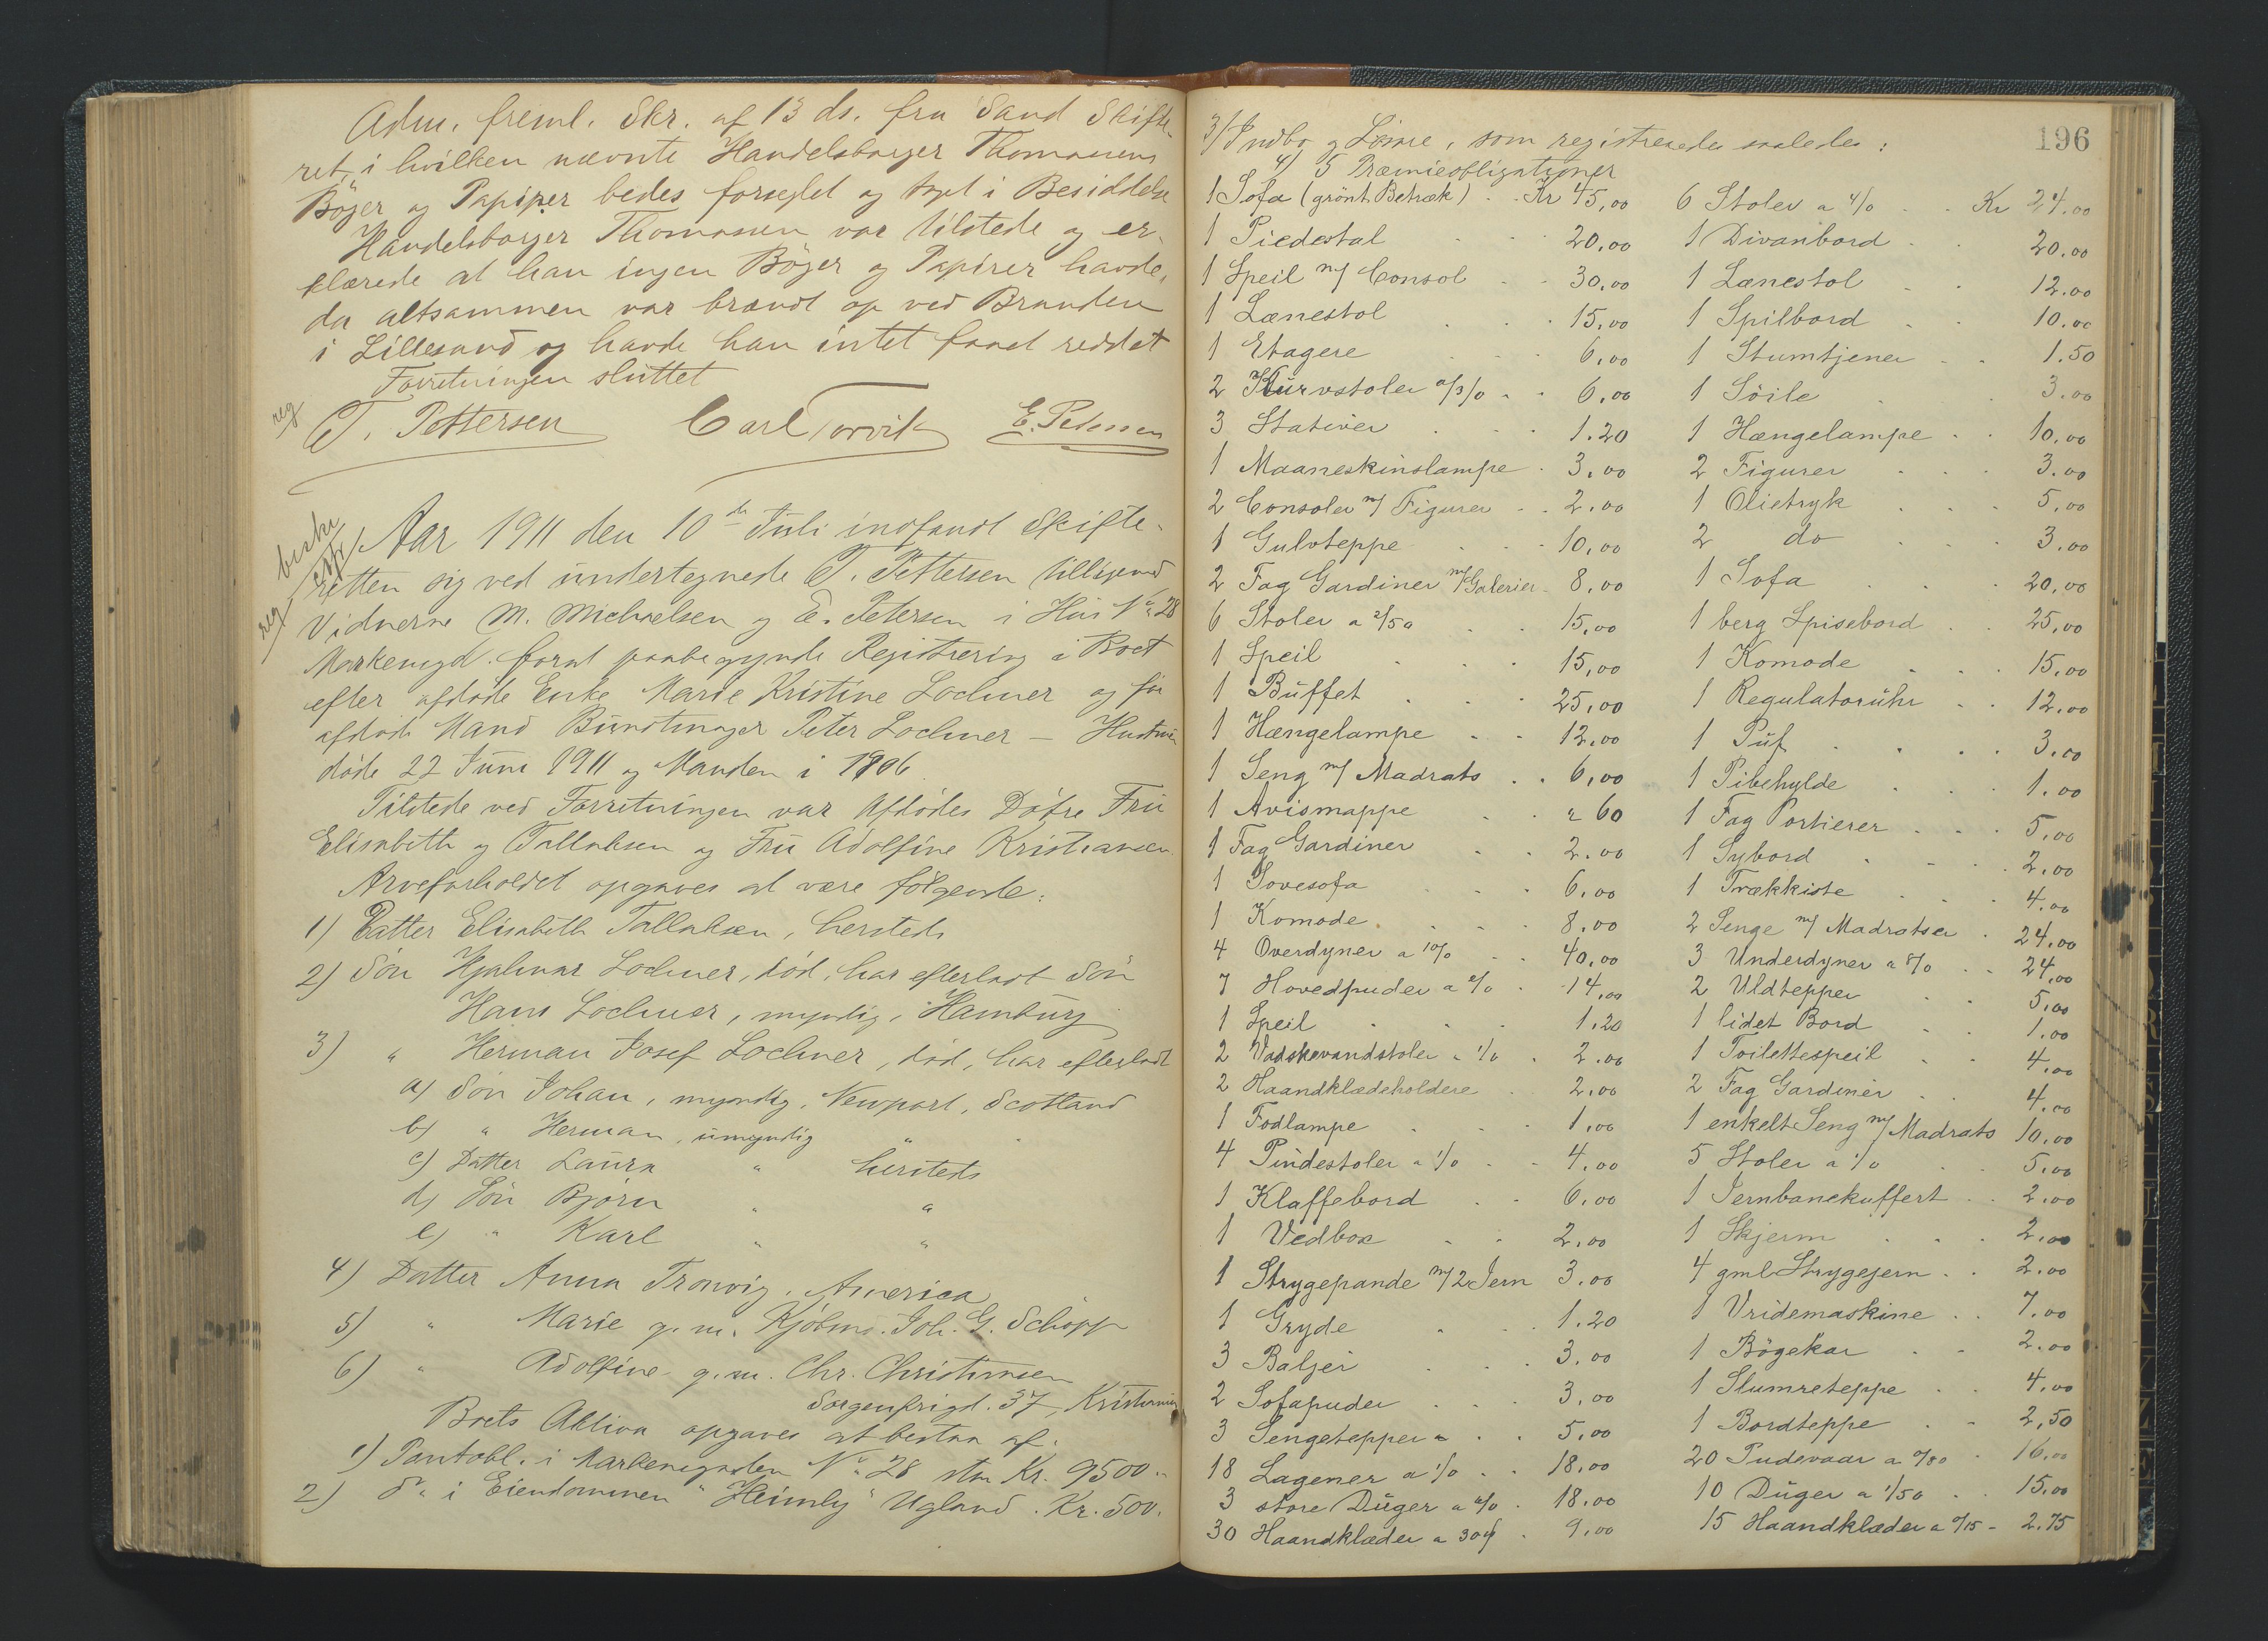 Adm. freml. Skr. af 13 ds. fra Sand Skifte-
ret, i hvilken nævnte Handelsborger Thomassens
Böger og Papirer bedes forseglet og taget i Besiddelse
Handelsborger Thomassen var tilstede og er-
klærede at han ingen Böger og Papirer havde,
da altsammen var brændt op ved Branden
i Lillesand og havde han intet faaet reddet
Forretningen sluttet
reg
T. Pettersen Carl Torvik E. Petersen
beskr
reg
Aar 1911 den 10de Juli indfandt Skifte-
retten sig ved undertegnede T. Pettersen tilligemed
Vidnerne M. Michaelsen og E. Petersen i Hus No 28
Markensgd. forat paabegynde Registrering i Boet
efter afdöde Enke Marie Kristine Lochner og för
afdöde Mand Buntmager Peter Lochner – Hustruen
döde 22 Juni 1911 og Manden i 1906
Tilstede ved Forretningen var Afdödes Dötre Fru
Elisabeth og Tallaksen og Fru Adolfine Kristiansen.
Arveforholdet opgaves at være fölgende:
1) Datter Elisabeth Tallaksen, hersteds
2) Sön Hjalmar Lochner, död, har efterladt Sön
Hans Lochner, myndig, Hamburg
3) " Herman Josef Lochner, död, har efterladt
a) Sön Johan, myndig, Newport, Scotland
b) " Herman, umyndig "
c) Datter Laura " hersteds
d) Sön Björn " "
e) " Karl " "
4) Datter Anna Tronvig, America
5) " Marie g. m. Kjöbm. Joh. G. Schöpp
6) " Adolfine g. m. Chr. Christiansen
Sorgenfrigd. 37, Kristiania
Boets Aktiva opgaves at bestaa af:
1) Pantobl. i Markensgaden No 28 stor Kr. 9500.-
2) Do i Eiendommen "Heimly" Ugland. Kr. 500.
196
3) Indbo og Lösöre, som registreredes saaledes:
4) 5 Præmieobligationer
1 Sofa (grönt Betræk) . . Kr 45,00
1 Piedestal . . 20,00
1 Speil m/ Consol . . 30,00
1 Lænestol . . 15,00
1 Etagere . . 6,00
2 Kurvstoler a 3/0 . . 6,00
3 Stativer . . 1.20
1 Maaneskinslampe . 3,00
2 Consoler m/ Figurer . . 2,00
1 Gulvteppe . . 10,00
2 Fag Gardiner m/Galerier . 8,00
6 Stoler a 2/50 . . 15,00
1 Speil . . 15,00
1 Buffet . . 25,00
1 Hængelampe . . 12,00
1 Seng m/ Madrats . . 6,00
1 Avismappe . . " 60
1 Fag Gardiner . . 2.00
1 Sovesofa . . 6,00
1 Komode . . 8,00
4 Overdyner a 10/0 . . 40,00
7 Hovedpuder a 2/0 . 14,00
1 Speil . . 1.20
2 Vadskevandstoler a 1/0 . 2.00
2 Haandklædeholdere . 2,00
1 Fodlampe . . 1,00
4 Pindestoler a 1/0 . . 4,00
1 Klaffebord . . 6,00
1 Vedbox . . 2,00
1 Strygepande m/ 2 Jern 3.00
1 Gryde . . 1.20
3 Baljer . . 3,00
2 Sofapuder . . 3,00
3 Sengetepper . . 5,00
18 Lagener a 1/0 . . 18,00
3 store Duger a 6/0 . 18.00
30 Haandklæder a 30 ø . 9,00
6 Stoler a 4/0 . . Kr 24.00
1 Divanbord . 20.00
1 Lænestol . . 12.00
1 Spilbord . . 10.00
1 Stumtjener . . 1.50
1 Söile . . 3.00
1 Hængelampe . . 10,00
2 Figurer . . 3.00
1 Olietryk . . 5,00
2 do . . 3.00
1 Sofa . . 20,00
1 berg Spisebord . . 25,00
1 Komode . . 15,00
1 Regulatoruhr . . 12,00
1 Puf . . 3.00
1 Pibehylde . . 1.00
1 Fag Portierer . . 5,00
1 Sybord . . 2,00
1 Trækkiste . . 4.00
2 Senge m/ Madratser . 24,00
3 Underdyner a 8/0 . . 24,00
2 Uldtepper . . 5,00
1 lidet Bord . . 1.00
1 Toilettespeil . . 4,00
2 Fag Gardiner . . 4.00
1 enkelt Seng m/ Madrats 10,00
5 Stoler a 1/0 . . 5,00
1 Jernbanekuffert . . 2,00
1 Skjerm . . 2,00
4 gml Strygejern . . 2.00
1 Vridemaskine . . 7.00
1 Bögekar . . 2.00
1 Slumreteppe . . 4,00
1 Bordteppe . . 2,50
20 Pudevaar a 0/80 . 16,00
10 Duger a 1/50 . . 15,00
15 Haandklæder a 0/15 - 2.75